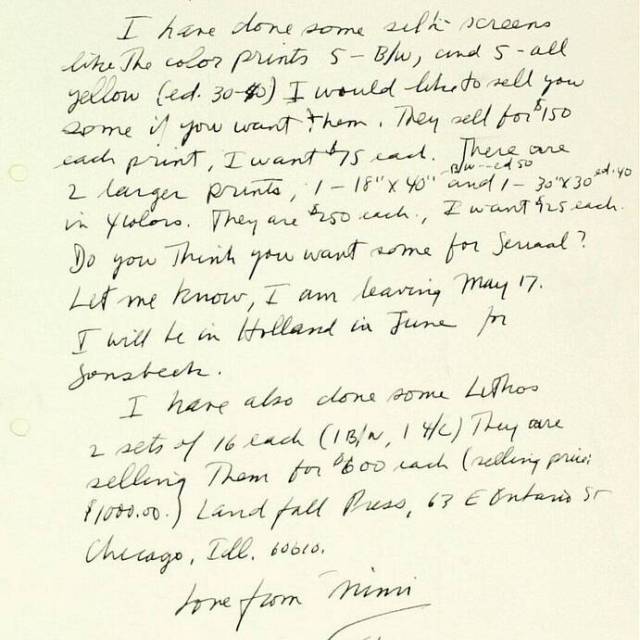 I have done some silk screens
like The color prints 5 - B/W, and 5 - all
yellow (ed. 30-50) I would like to sell you
some if you want them. They sell for $150
each print, I want $75 each. There are
2 larger prints, 1 - 18" x 40" B/W - ed 50 and 1 - 30" x 30 ed. 40
in 4 colors. They are $250 each., I want $125 each.
Do you Think you want some for Seriaal?
Let me know, I am leaving May 17.
I will be in Holland in June for
Sonsbeek.
I have also done some Lithos
2 sets of 16 each (1 B/W, 1 4/C) They are
selling Them for $600 each (selling price
$1000.00.) Landfall Press, 63 E Ontario St
Chicago, Ill. 60610.
Love from Mimi